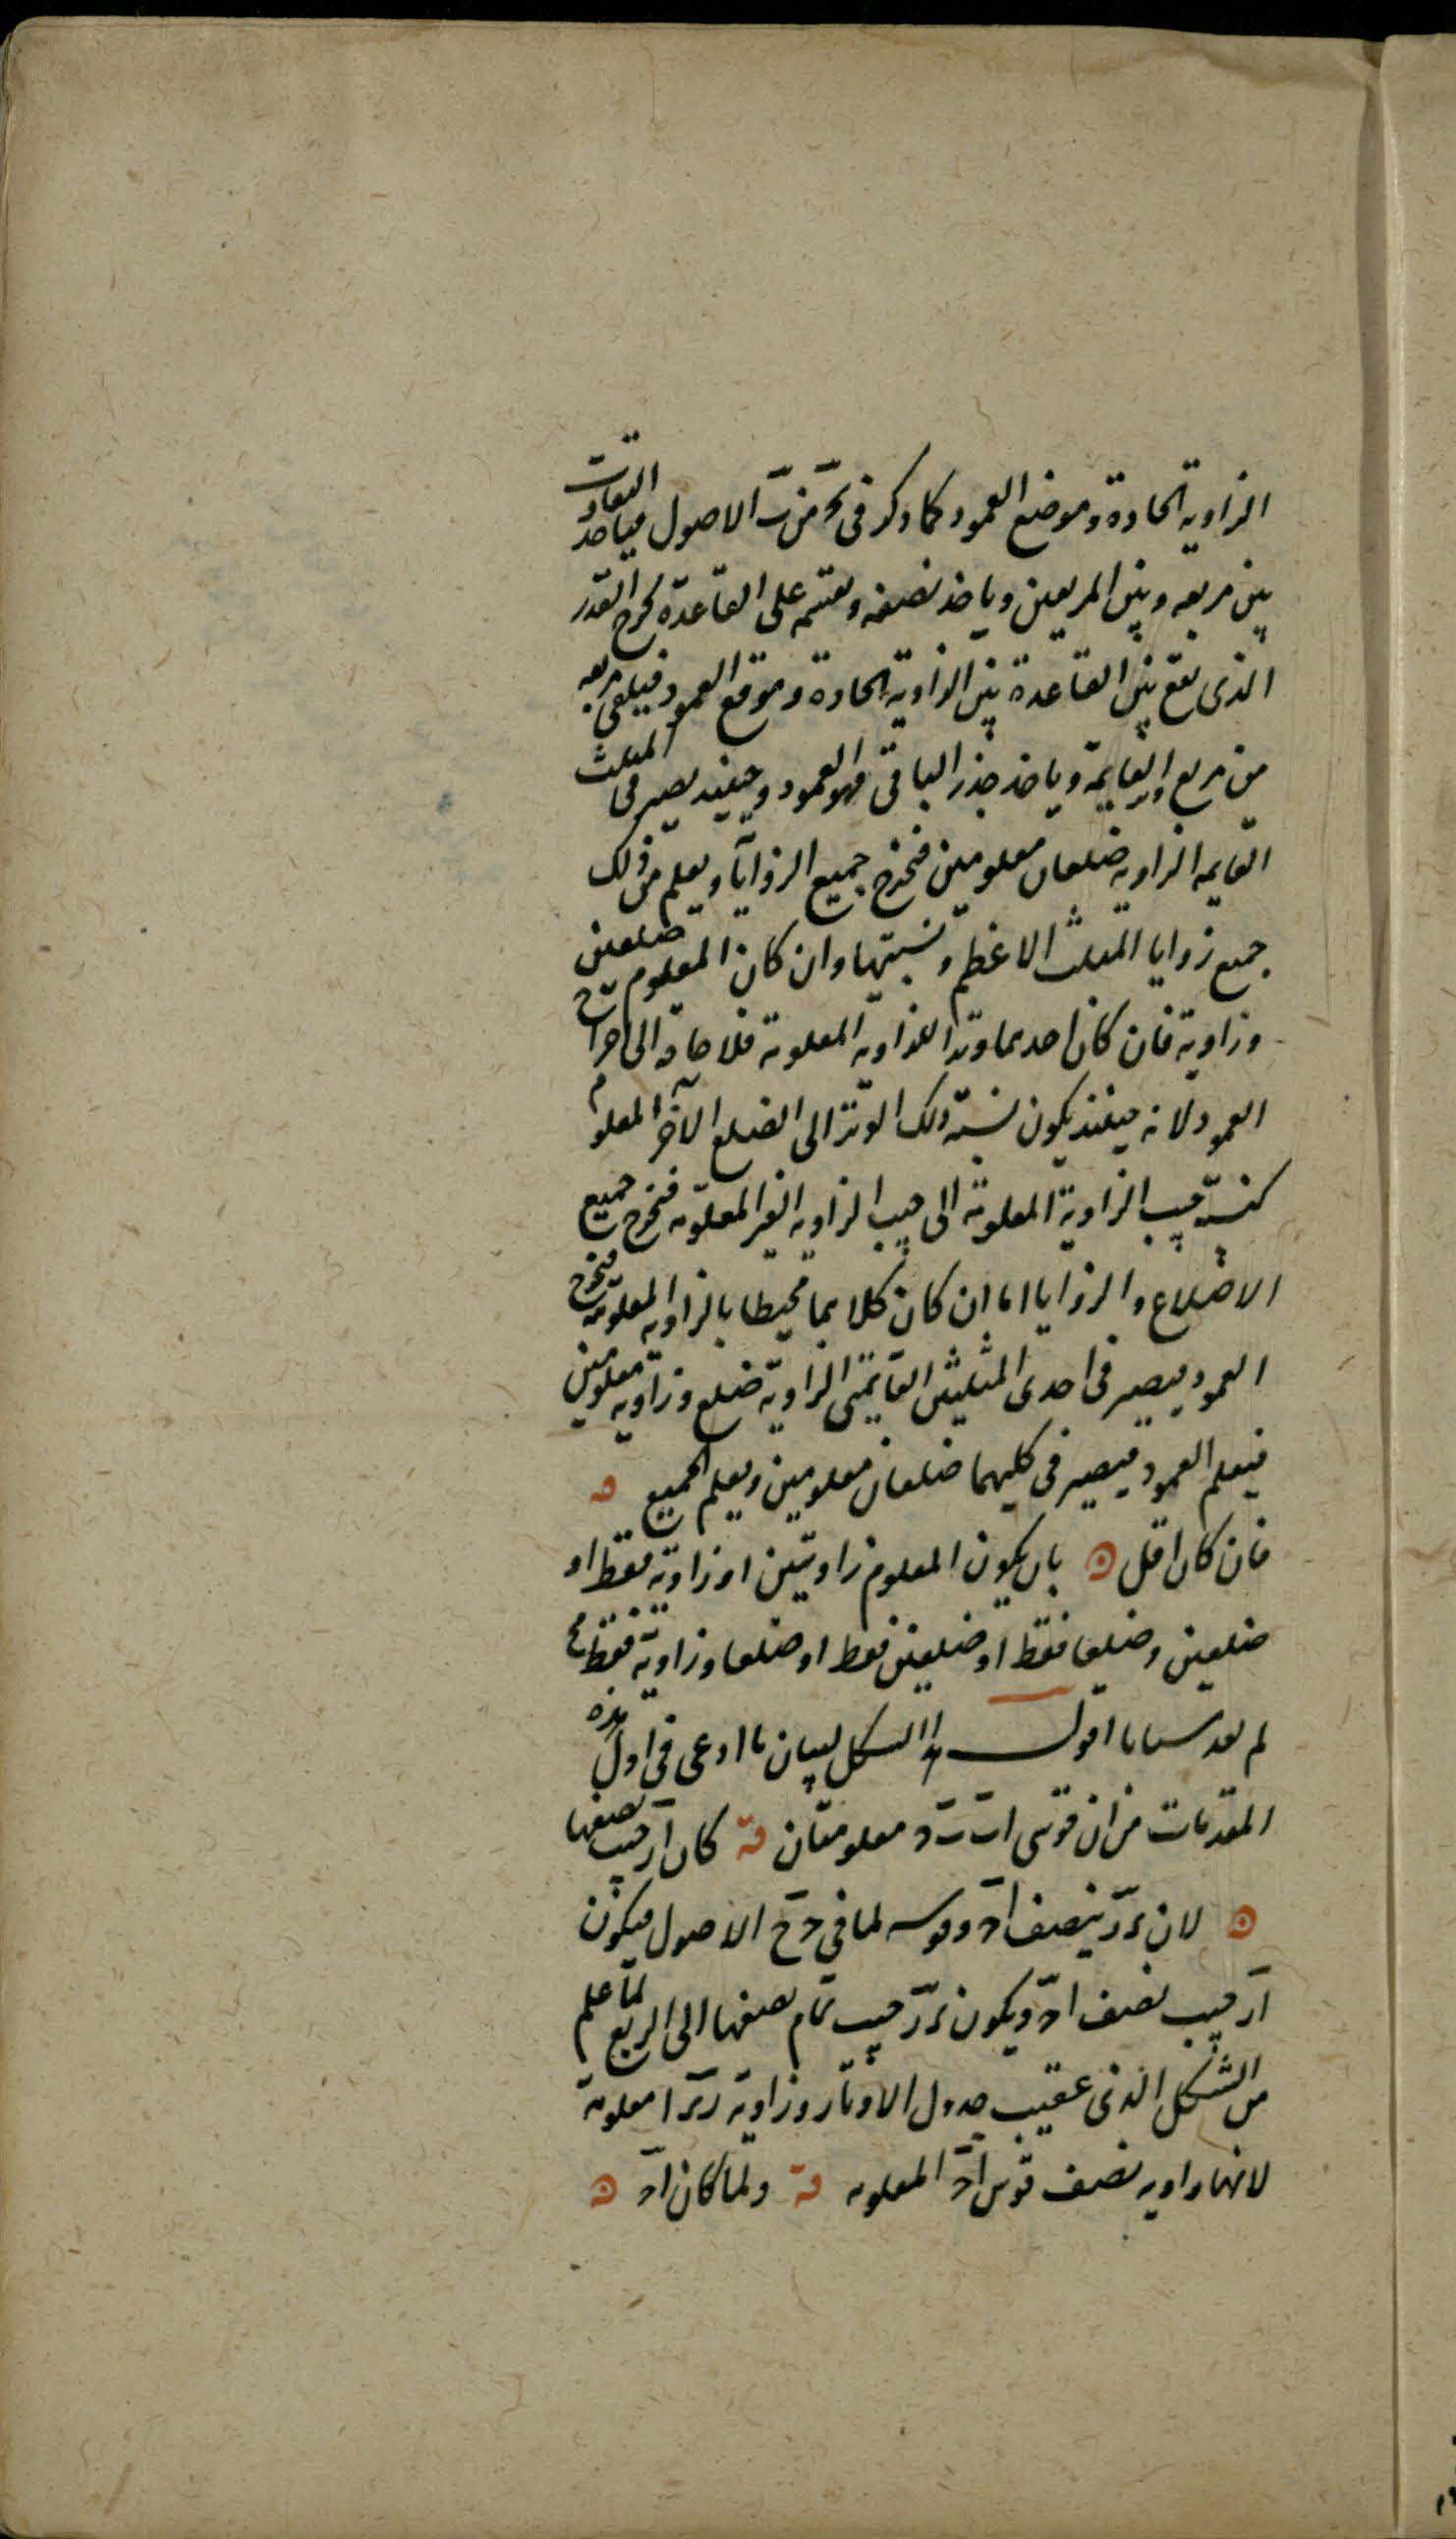 الزاوية الحادة وموضع العمود كما ذكر فى من الاصول فياخذ التفاوت
بين مربعه وبين المربعين وياخذ نصفه ويقسمه على القاعدة ليخرج القدر
الذى يقع بين القاعدة بين الزاوية الحادة وموقع العمود فيلقى مربعه
من مربع وتر القايمة وياخذ جذر الباقى فهو العمود وحينئذ يصير فى المثلث
القايمه الزاوية ضلعان معلومين فتخرج جميع الزوايا ويعلم من ذلك
جميع زوايا المثلث الاعظم ونسبتها وان كان المعلوم ضلعين
وزاوية فان كان احدهما وترا للزاوية المعلومة فلا حاجة الى اخراج
العمود لانه حينئذ يكون نسبة ذلك الوتر الى الضلع الآخر المعلوم
كنسبة جيب الزاوية المعلومة الى جيب الزاوية الغير المعلومة فتخرج جميع
الاضلاع والزوايا اما ان كان كلاهما محيطا بالزاوية المعلومة فتخرج
العمود فيصير فى احدى المثلثين القايمتى الزاوية ضلع وزاوية معلومين
فيعلم العمود فيصير فى كليهما ضلعان معلومين ويعلم الجميع قه
فان كان اقل ه بان يكون المعلوم زاويتين او زاوية فقط او
ضلعين وضلعا فقط او ضلعين فقط او ضلعا وزاوية فقط
لم يفد اقول هذا الشكل لبيان ما ادعى فى اول هذه
المقدمات من ان قوسى اب ب د معلومتان قه كان آر جيب نصفها
ه لان ينصف اد وقوسه لما فى ج ح الاصول فيكون
آر جيب نصف اد ويكون جيب تمام نصفها الى الربع لما علم
من الشكل الذى عقيب جدول الاوتار وزاوية معلومة
لانها زاويه نصف قوس اد المعلومه قه ولما كان اد ه